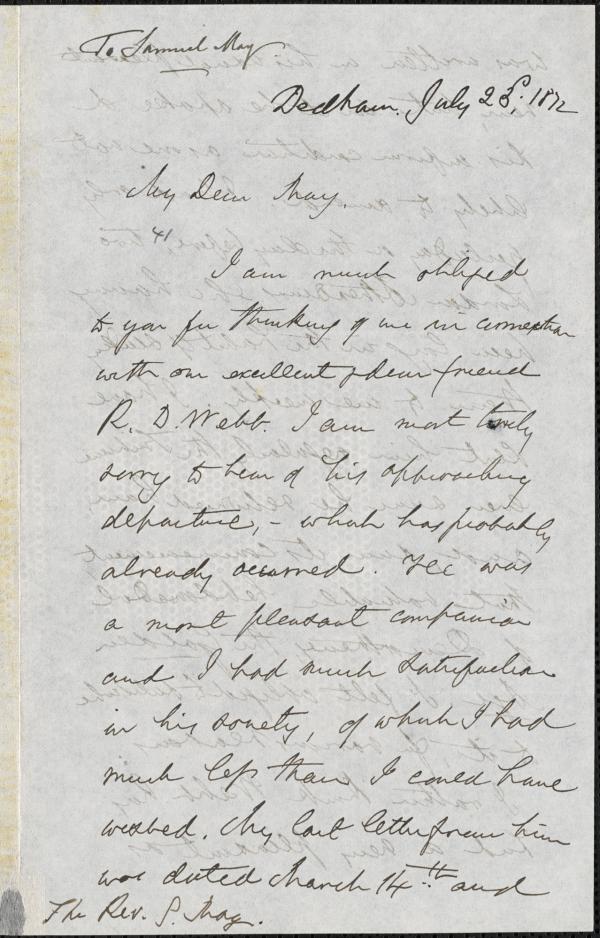 To Samuel May
Dedham. July 23d, 1872
My Dear May.
41
I am much obliged
to you for thinking of me in connection
with our excellent & dear friend
R. D. Webb. I am most truly
sorry to hear of his approaching
departure, – which has probably
already occurred. He was
a most pleasant companion
and I had much satisfaction
in his society, of which I had
much less than I could have
wished. My last letter from him
was dated March 14th. and
The Rev. S. May.